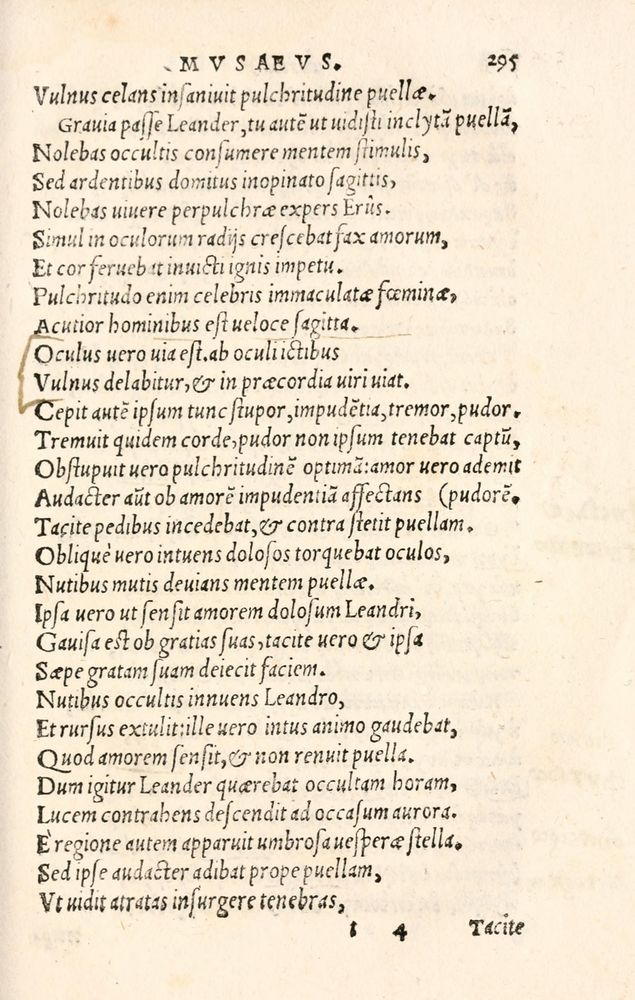 MVSAEVS. 295
Vulnus celans insaniuit pulchritudine puellæ.
Grauia passe Leander, tu autē ut uidisti inclytā puellā,
Nolebas occultis consumere mentem stimulis,
Sed ardentibus domitus inopinato sagittis,
Nolebas uiuere perpulchræ expers Erûs.
Simul in oculorum radijs crescebat fax amorum,
Et cor feruebat inuicti ignis impetu.
Pulchritudo enim celebris immaculatæ fœminæ,
Acutior hominibus est ueloce sagitta.
Oculus uero uia est. ab oculi ictibus
Vulnus delabitur, & in præcordia uiri uiat.
Cepit autē ipsum tunc stupor, impudētia, tremor, pudor.
Tremuit quidem corde, pudor non ipsum tenebat captū,
Obstupuit uero pulchritudinē optimā: amor uero ademit
Audacter aūt ob amorē impudentiā affectans (pudorē.
Tacite pedibus incedebat, & contra stetit puellam.
Obliquè uero intuens dolosos torquebat oculos,
Nutibus mutis deuians mentem puellæ.
Ipsa uero ut sensit amorem dolosum Leandri,
Gauisa est ob gratias suas, tacite uero & ipsa
Sæpe gratam suam deiecit faciem.
Nutibus occultis innuens Leandro,
Et rursus extulit: ille uero intus animo gaudebat,
Quod amorem sensit, & non renuit puella.
Dum igitur Leander quærebat occultam horam,
Lucem contrahens descendit ad occasum aurora.
È regione autem apparuit umbrosa uesperæ stella.
Sed ipse audacter adibat prope puellam,
Vt uidit atratas insurgere tenebras,
I 4 Tacite